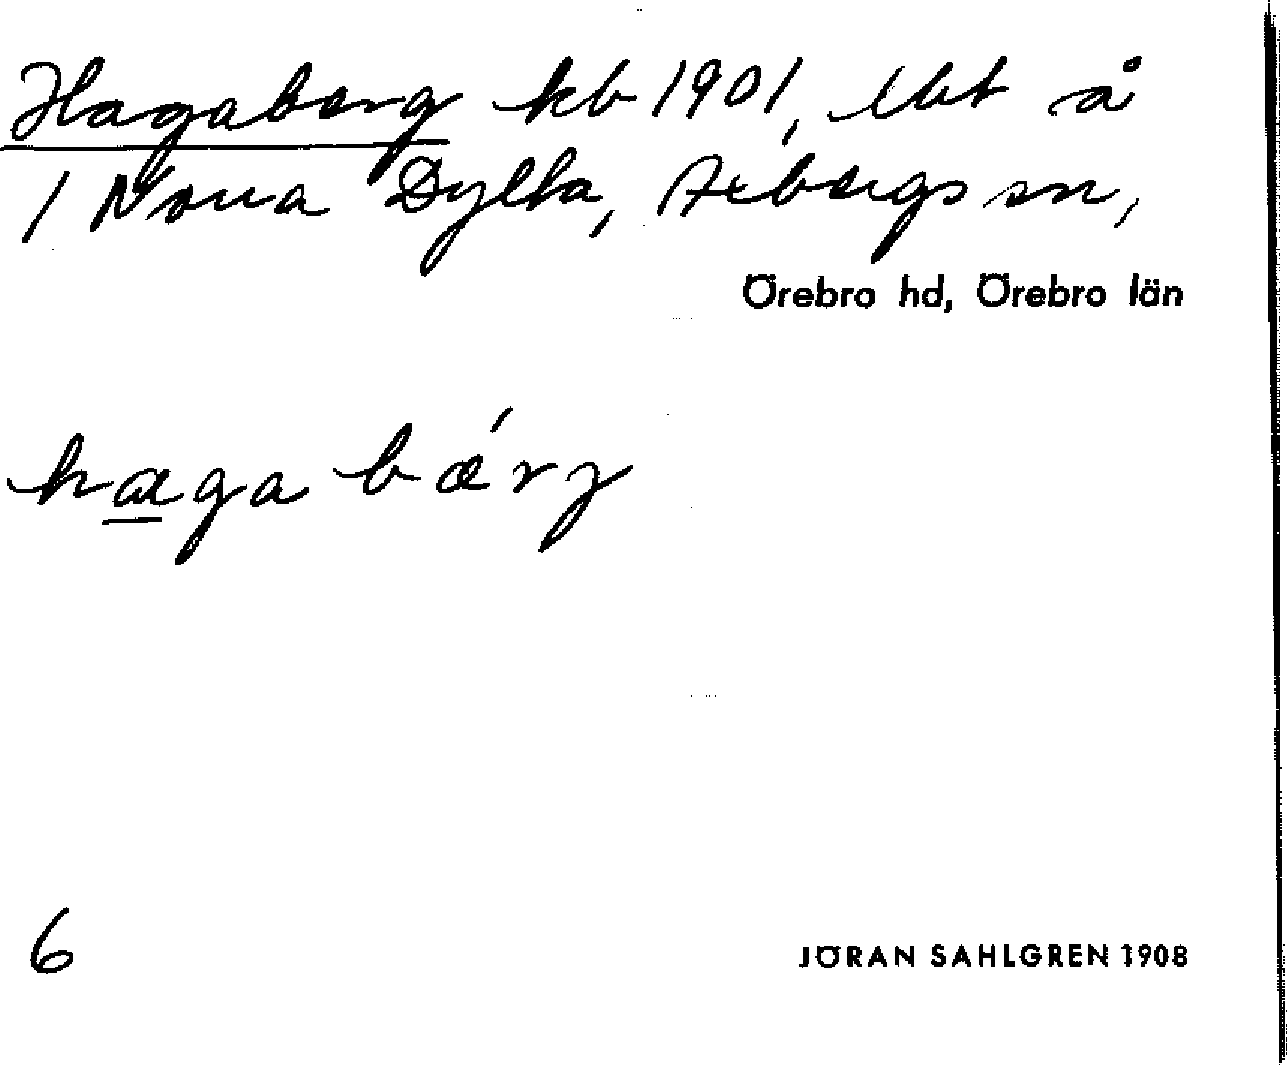 Hagaberg kb 1901, lht å
1 Norra Dylta, Axbergs sn,
Örebro hd, Örebro län
hagabǽrj
6
JÖRAN SAHLGREN 1908